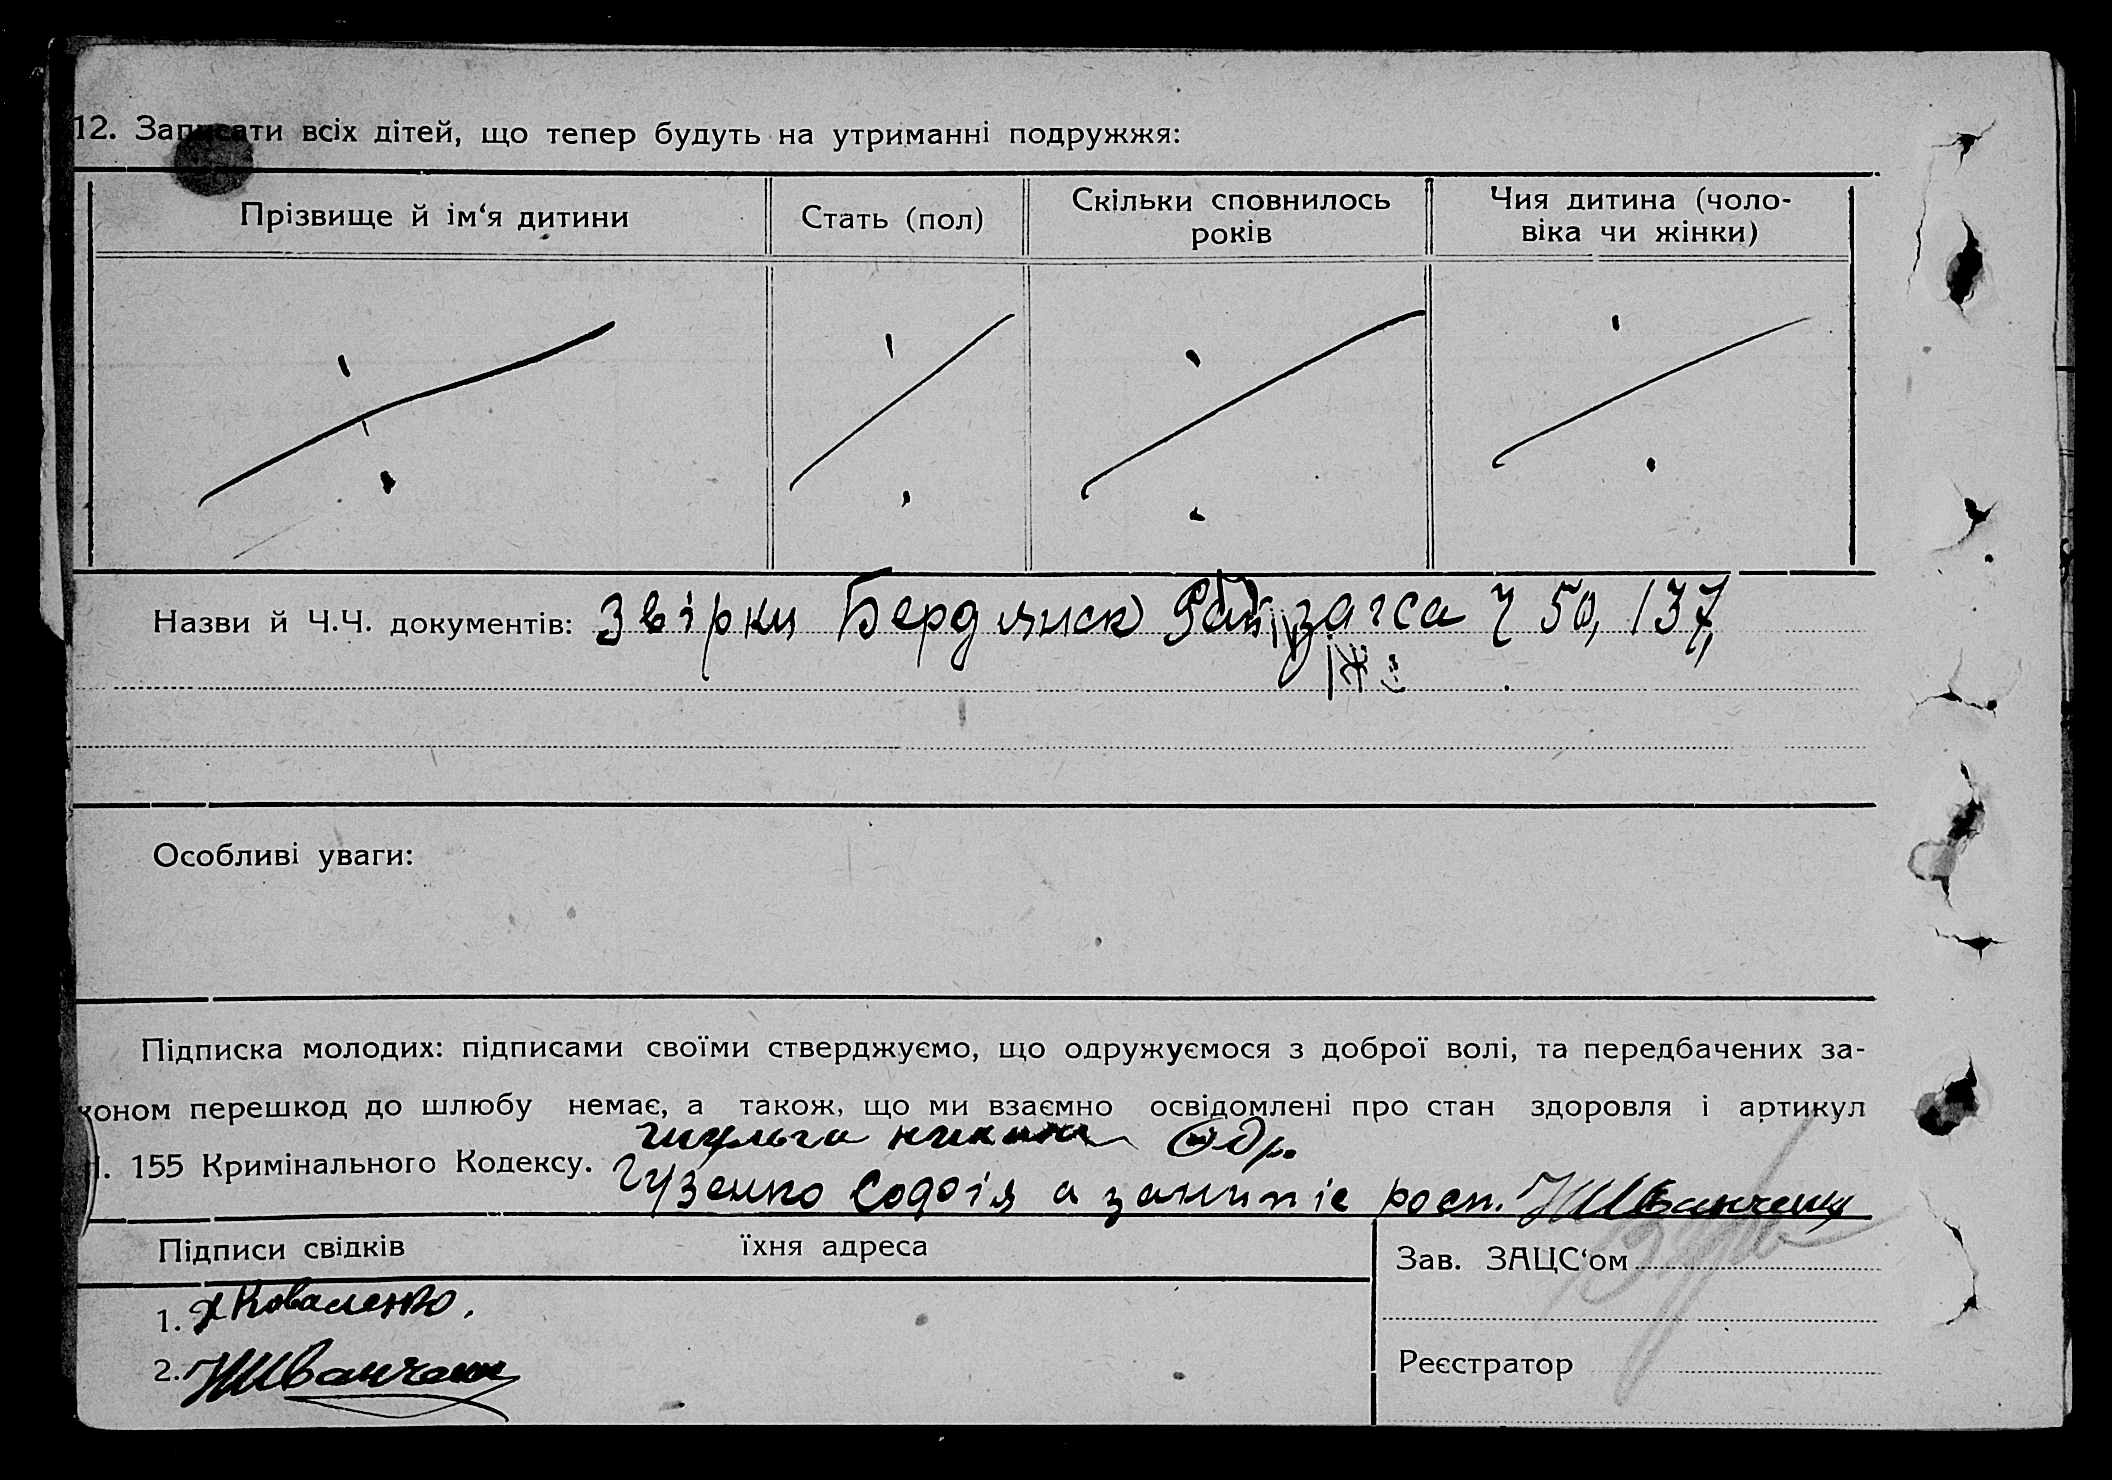 12. Записати всіх дітей, що тепер будуть на утриманні подружжя:
Прізвище й ім‘я дитини
Стать (пол)
Скільки сповнилось
років
Чия дитина (чоло-
віка чи жінки)
Назви й Ч.Ч. документів: Звірки Бердянск Рай загса Ч 50, 137,
Особливі уваги:
Підписка молодих: підписами своїми стверджуємо, що одружуємося з доброї волі, та передбачених за-
коном перешкод до шлюбу немає, а також, що ми взаємно освідомлені про стан здоровля і артикул
155 Кримінального Кодексу.
Шульга
Гузенко Софія а за росп.
Підписи свідків
їхня адреса
1. Коваленко.
2.
Зав. ЗАЦС‘ом
Реєстратор